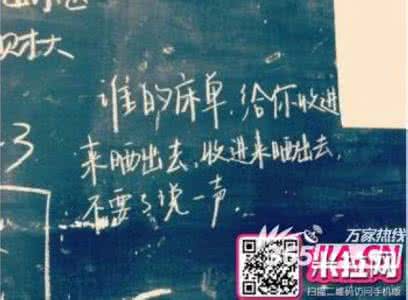 财大
谁的床单,给你收进
来晒出去,收进来晒出去,
不要了说一声.
3
万家热线
365JIA.CN
米拉网
扫描二维码访问手机版